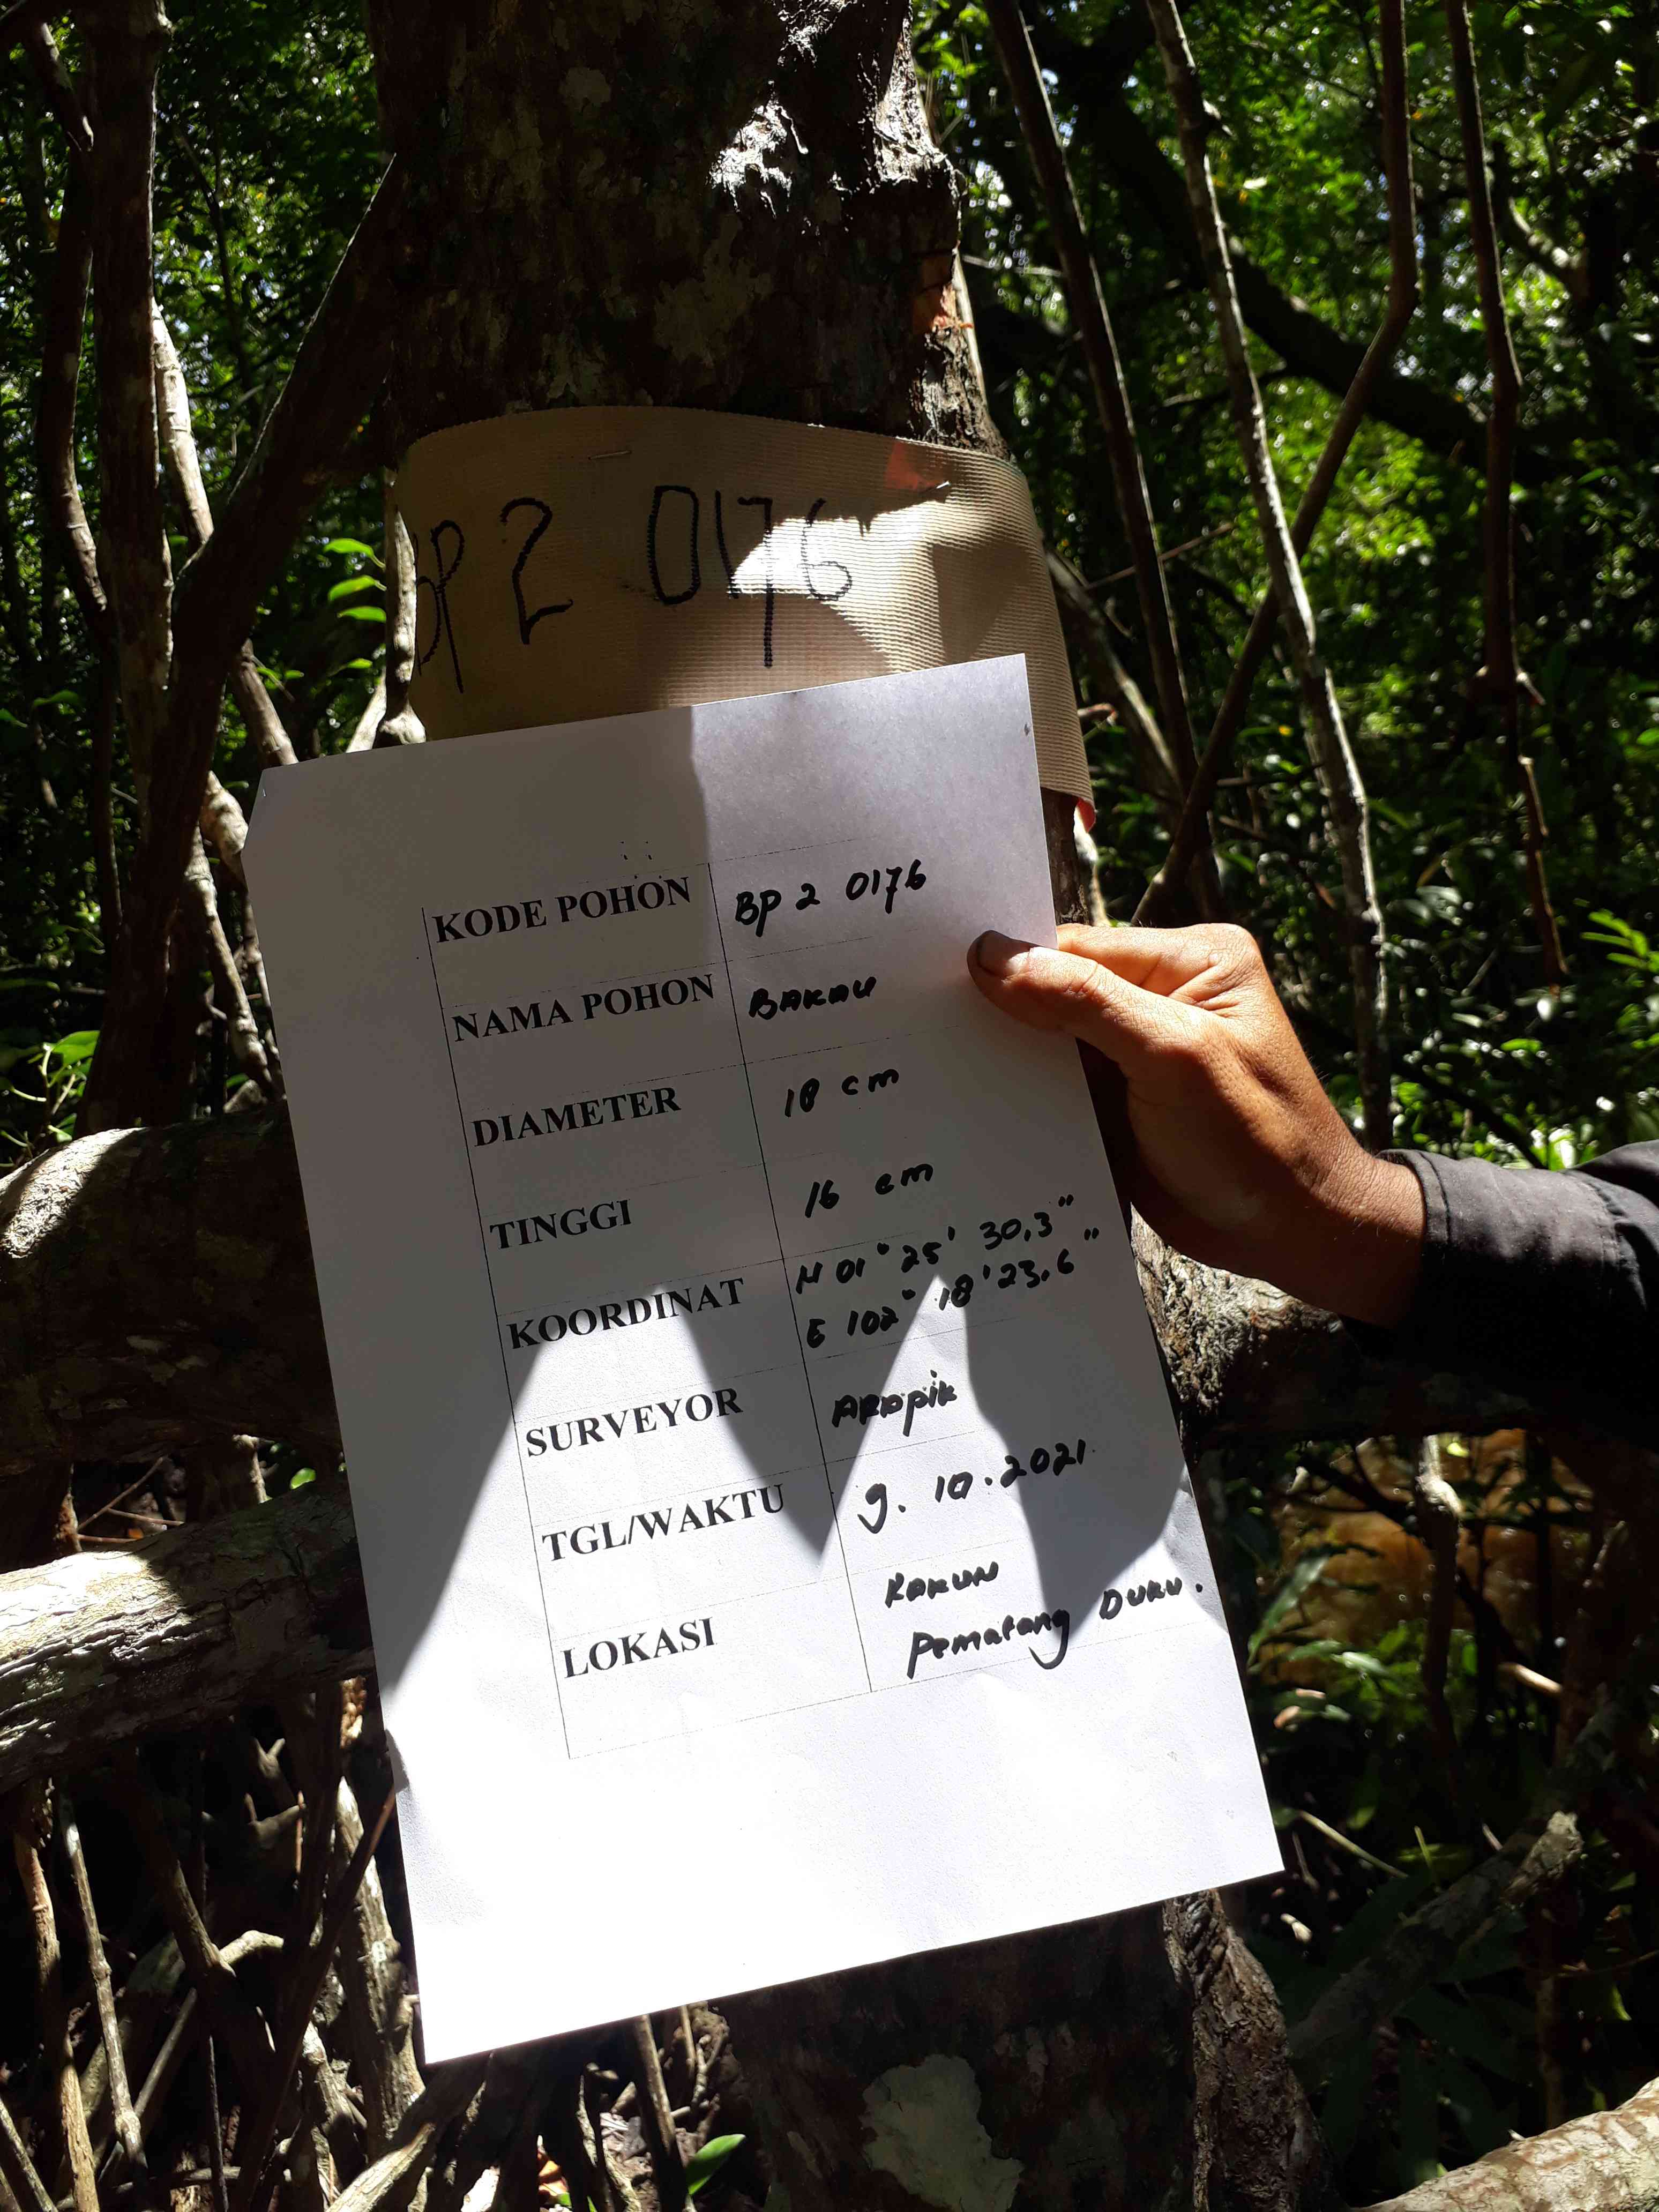 BP 2 0176
KODE POHON BP 2 0176
NAMA POHON BAKAU
DIAMETER 18 cm
TINGGI 16 cm
KOORDINAT N 01° 25' 30.3"
E 102° 18' 23.6"
SURVEYOR ARAPIK
TGL/WAKTU 9.10.2021
LOKASI KAKUN
Pematang DUKU.